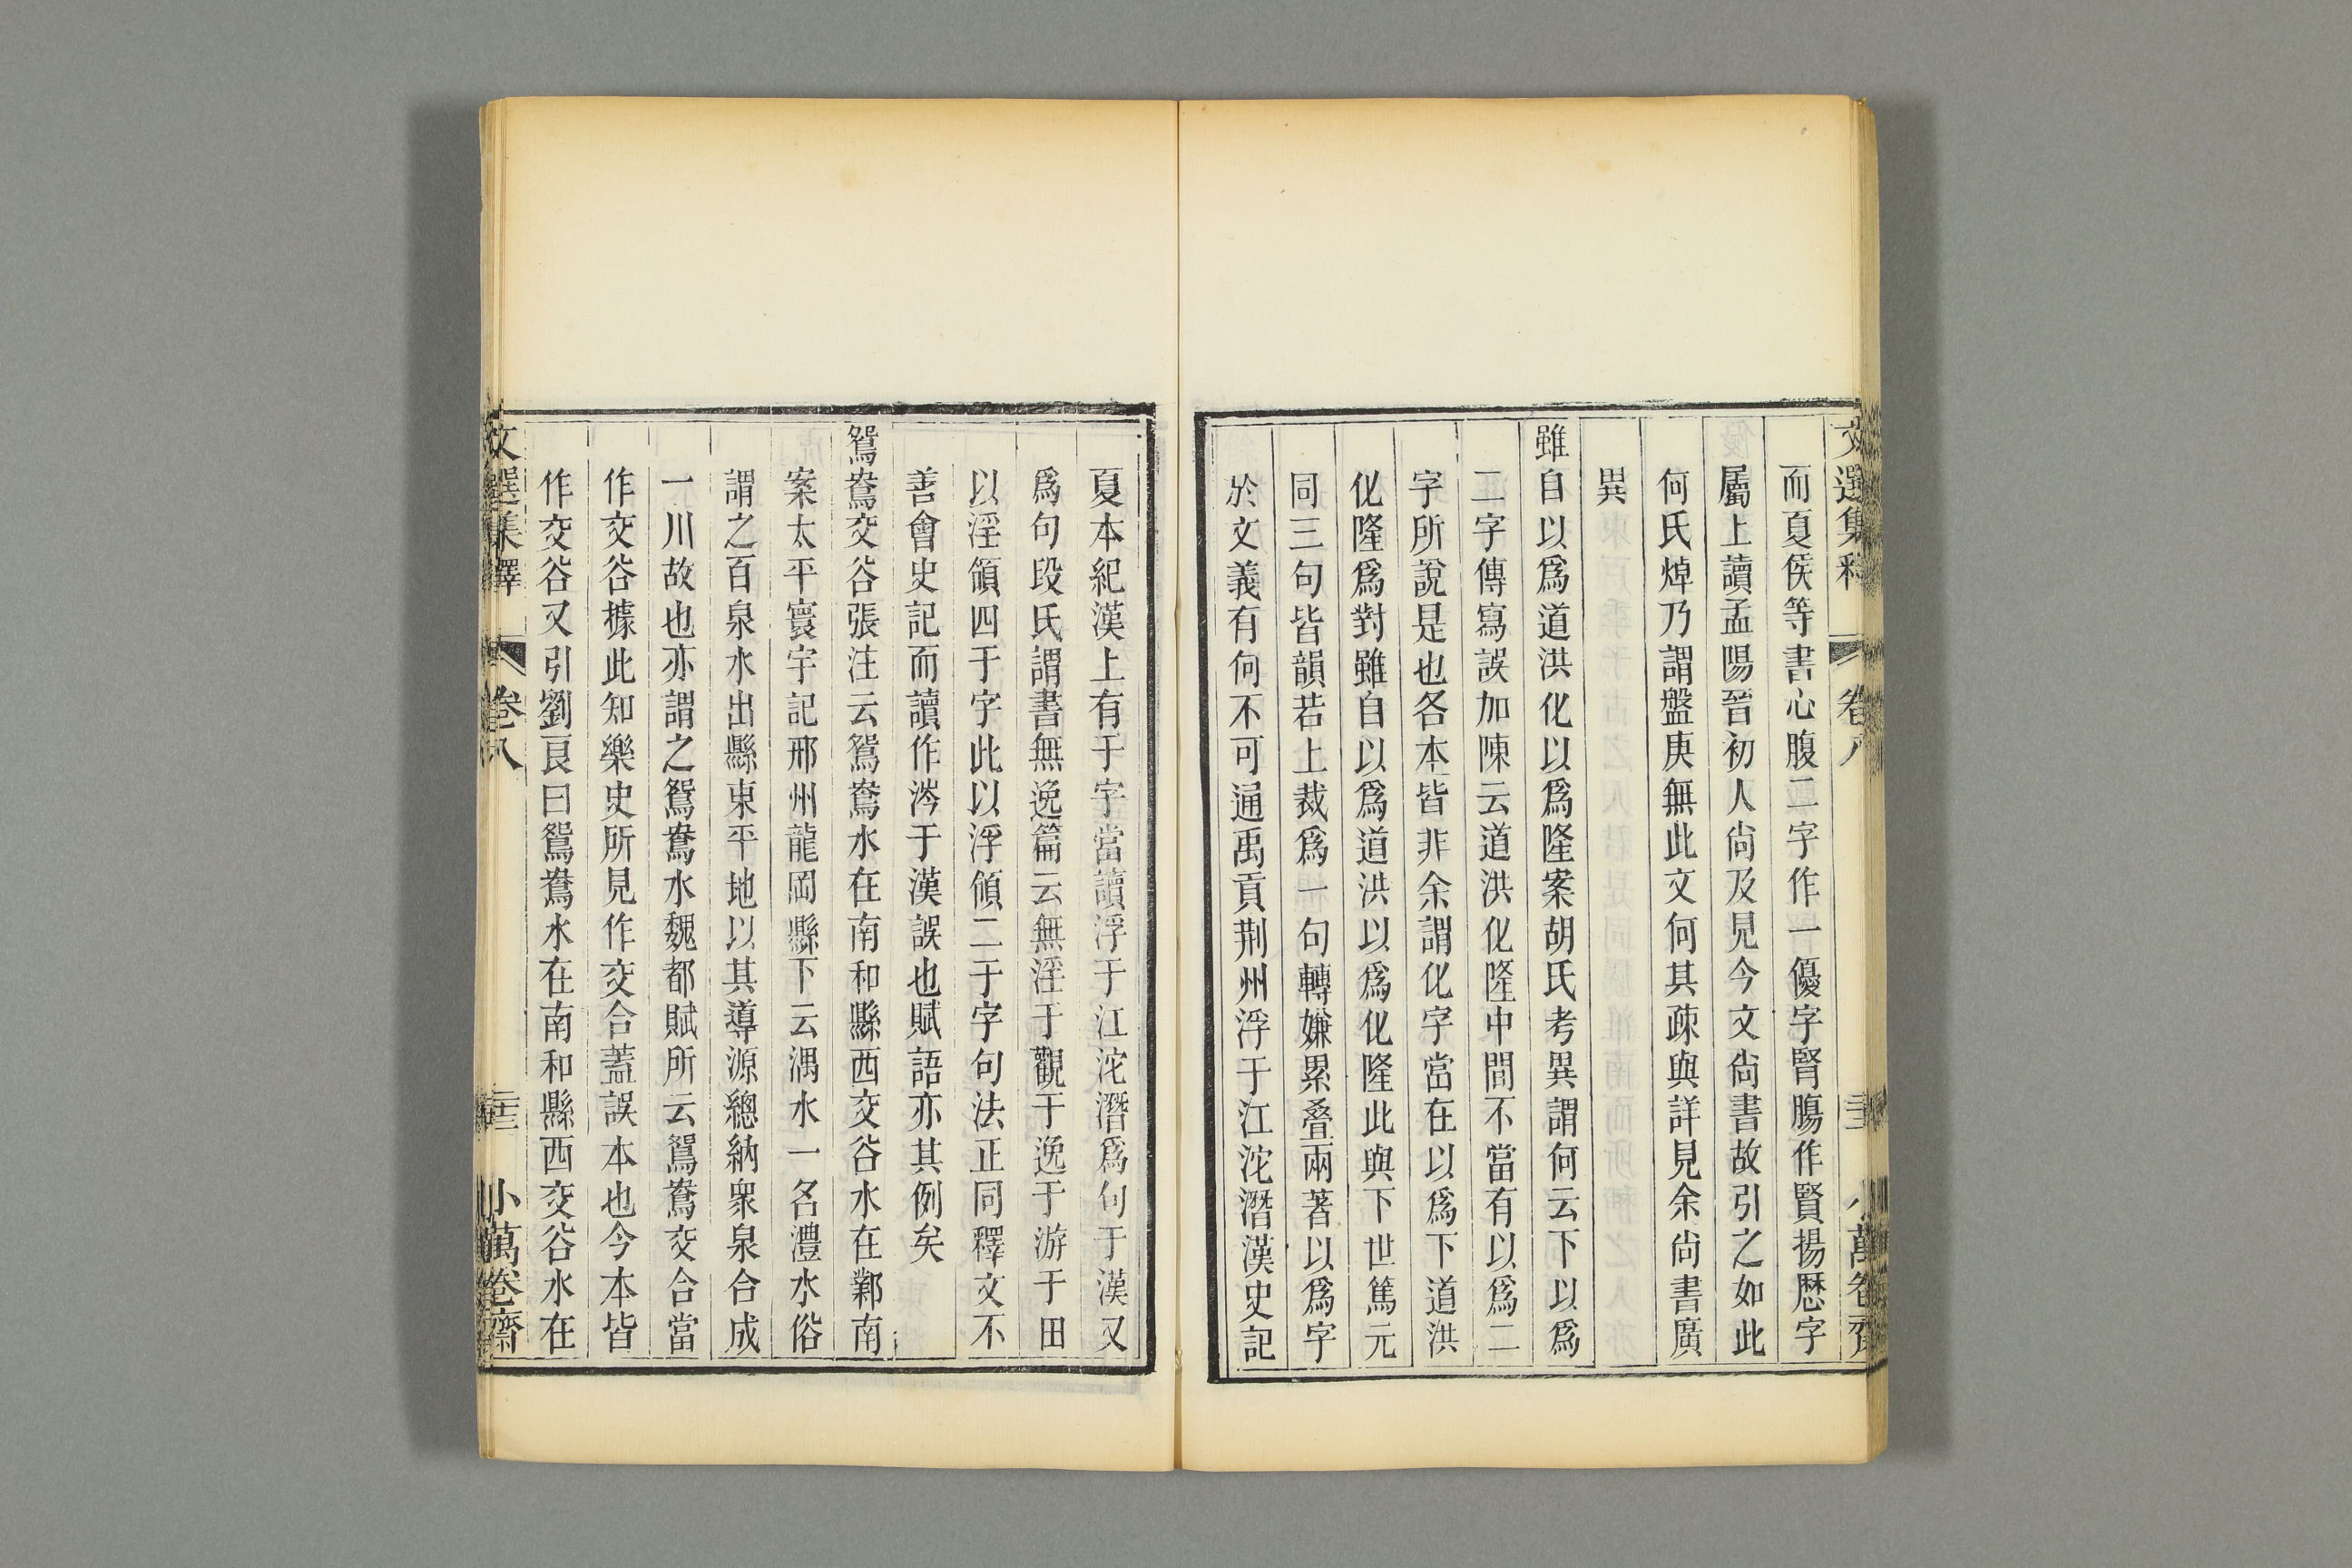 而夏侯等書心腹二字作一優字腎腸作賢揚歷字
屬上讀孟陽晉初人尙及見今文尙書故引之如此
何氏焯乃謂盤庚無此文何其疎與詳見余尙書廣
異
雖自以爲道洪化以爲隆案胡氏考異謂何云下以爲
二字傳寫誤加陳云道洪化隆中間不當有以爲二
字所說是也各本皆非余謂化字當在以爲下道洪
化隆爲對雖自以爲道洪以爲化隆此與下世篤元
同三句皆韻若上裁爲一句轉嫌累疊兩著以爲字
於文義有何不可通禹貢荆州浮于江沱潛漢史記
夏本紀漢上有于字當讀浮于江沱潛爲句于漢又
爲句段氏謂書無逸篇云無淫于觀于逸于游于田
以淫領四于字此以浮領二于字句法正同釋文不
善會史記而讀作涔于漢誤也賦語亦其例矣
鴛鴦交谷張注云鴛鴦水在南和縣西交谷水在鄴南
案太平寰宇記邢州龍岡縣下云湡水一名澧水俗
謂之百泉水出縣東平地以其導源總納衆泉合成
一川故也亦謂之鴛鴦水魏都賦所云鴛鴦交合當
作交谷據此知樂史所見作交合蓋誤本也今本皆
作交谷又引劉良曰鴛鴦水在南和縣西交谷水在
文選集釋
卷八
小萬卷齋